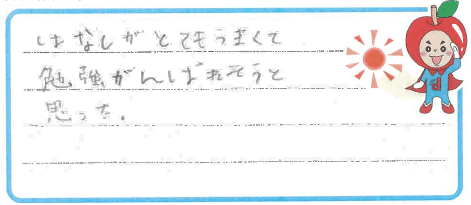 はなしがとてもうまくて
勉強がんばれそうと
思った.